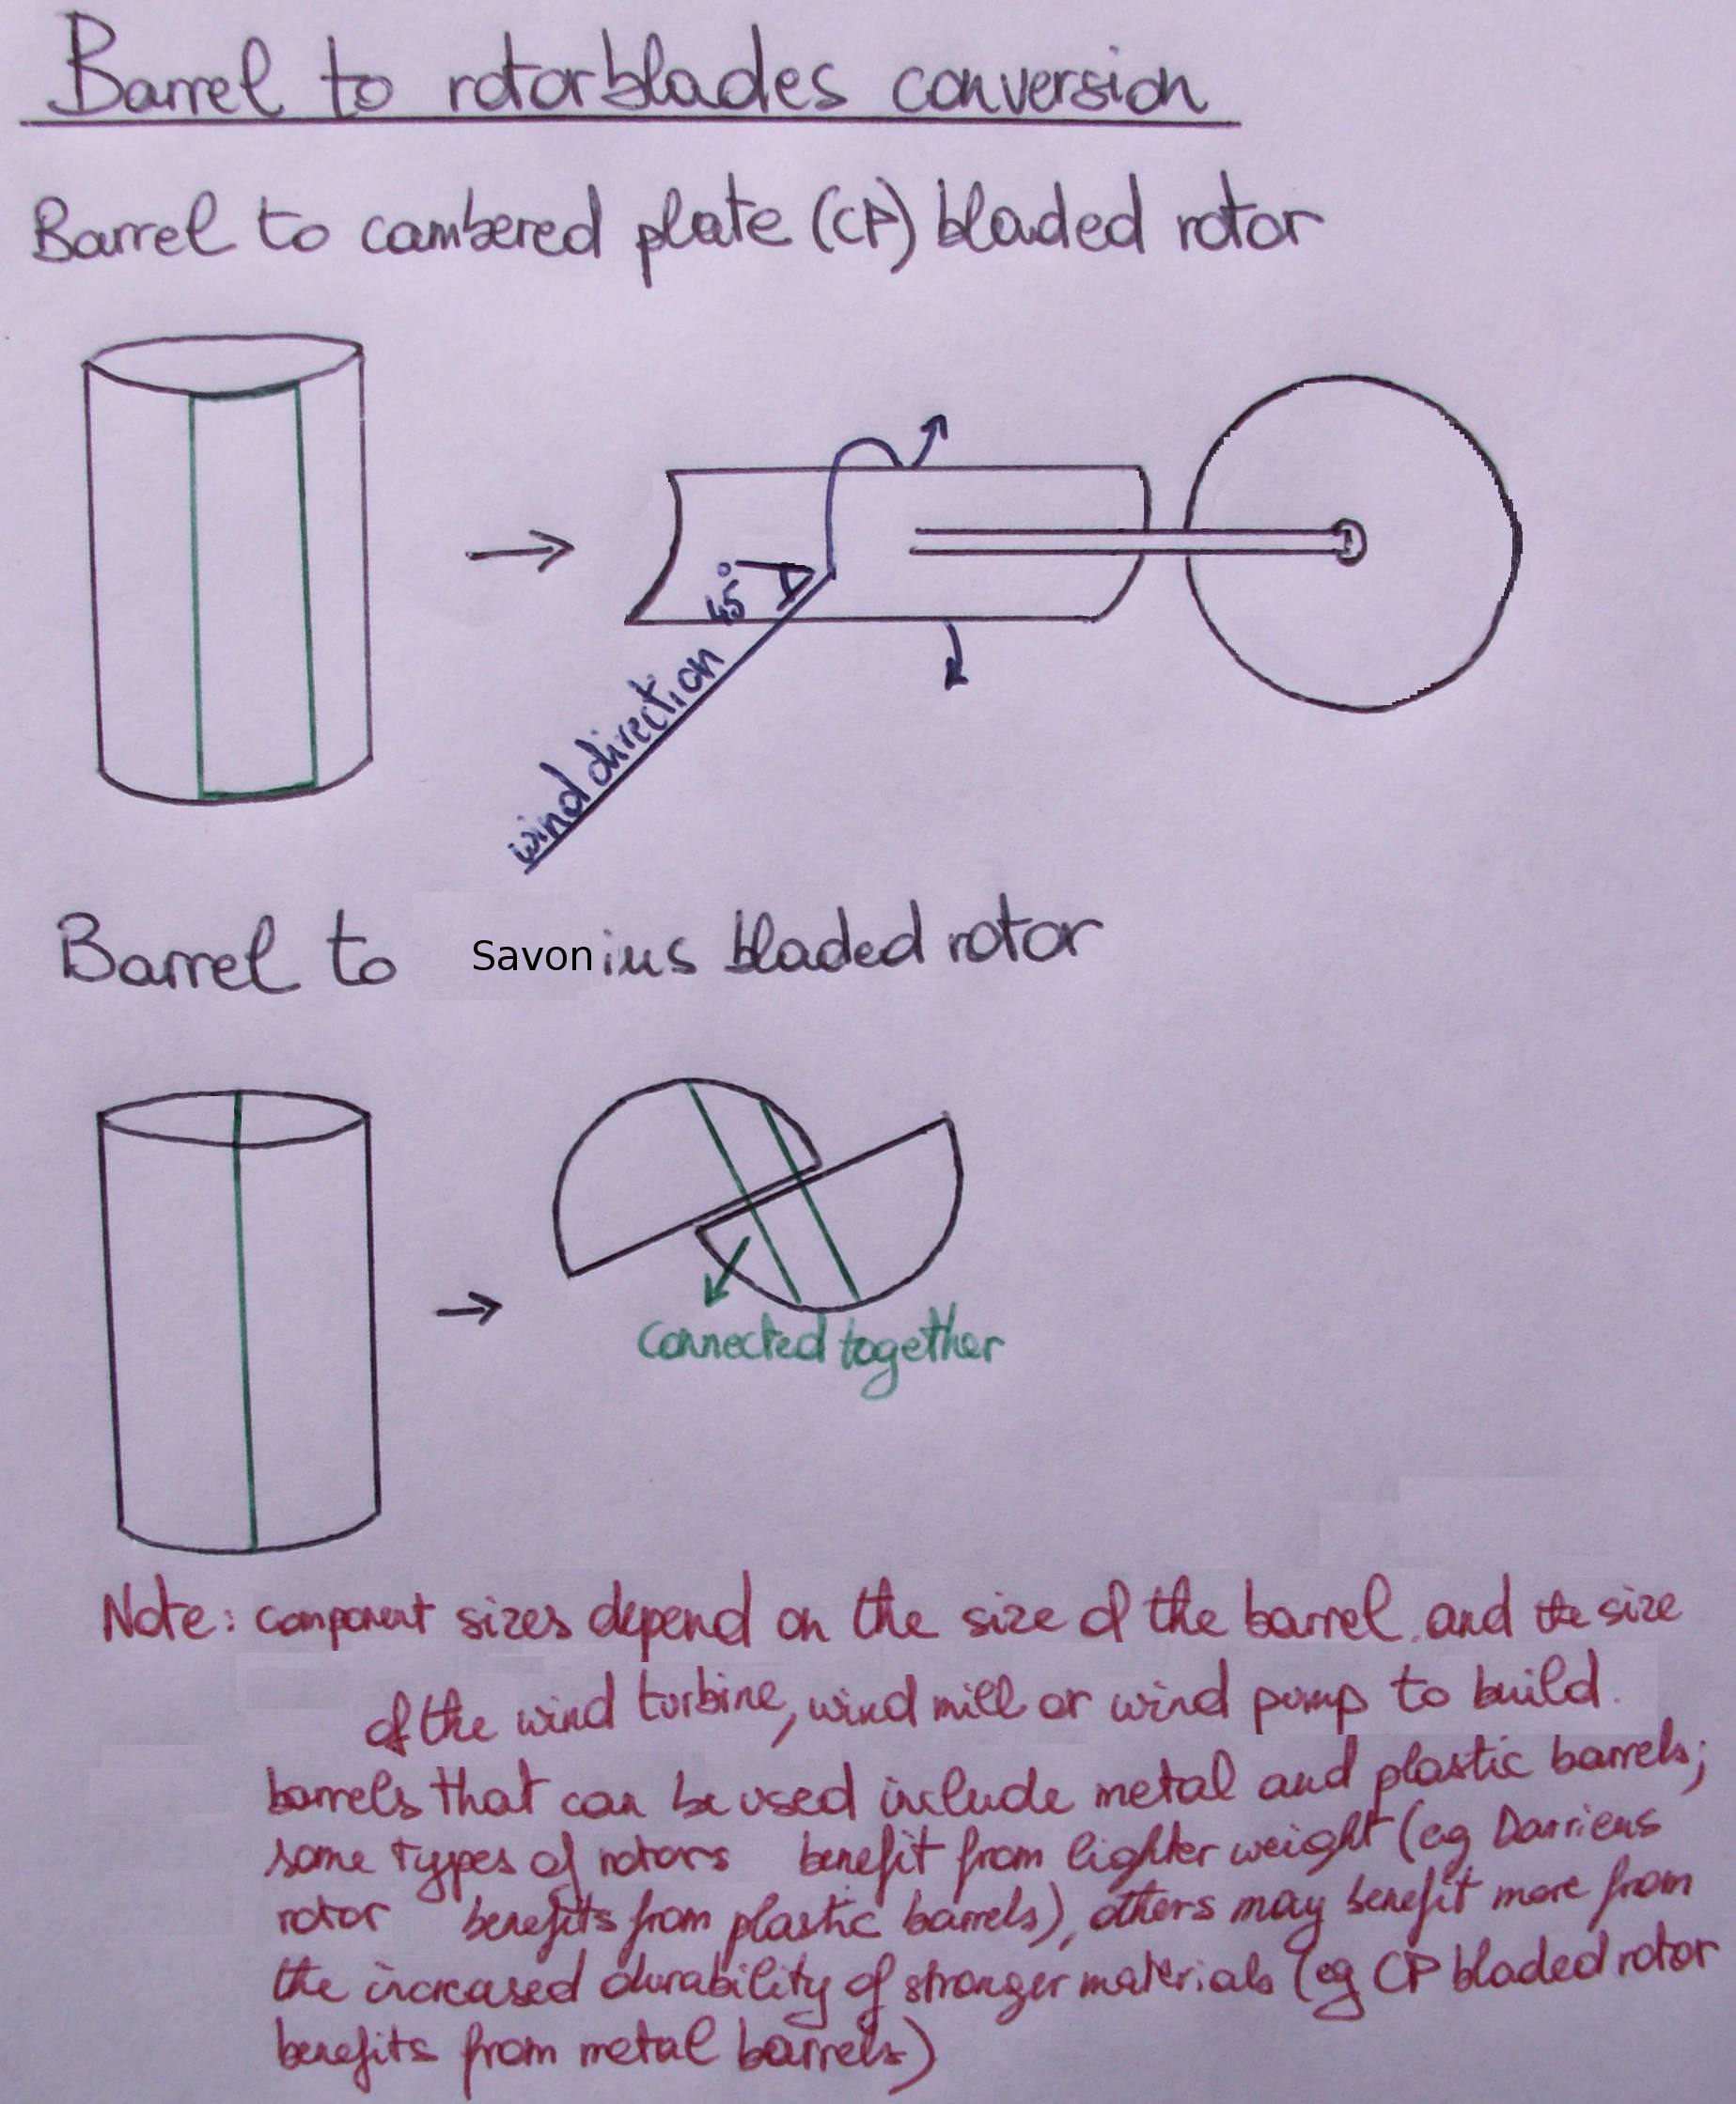 Barrel to rotorblades conversion
Barrel to cambered plate (CP) bladed rotor
45°
wind direction
Barrel to Savonius bladed rotor
Connected together
Note: component sizes depend on the size of the barrel and the size
of the wind turbine, wind mill or wind pump to build.
barrels that can be used include metal and plastic barrels;
some types of rotors benefit from lighter weight (eg Darrieus
rotor benefits from plastic barrels), others may benefit more from
the increased durability of stronger materials (eg CP bladed rotor
benefits from metal barrels)